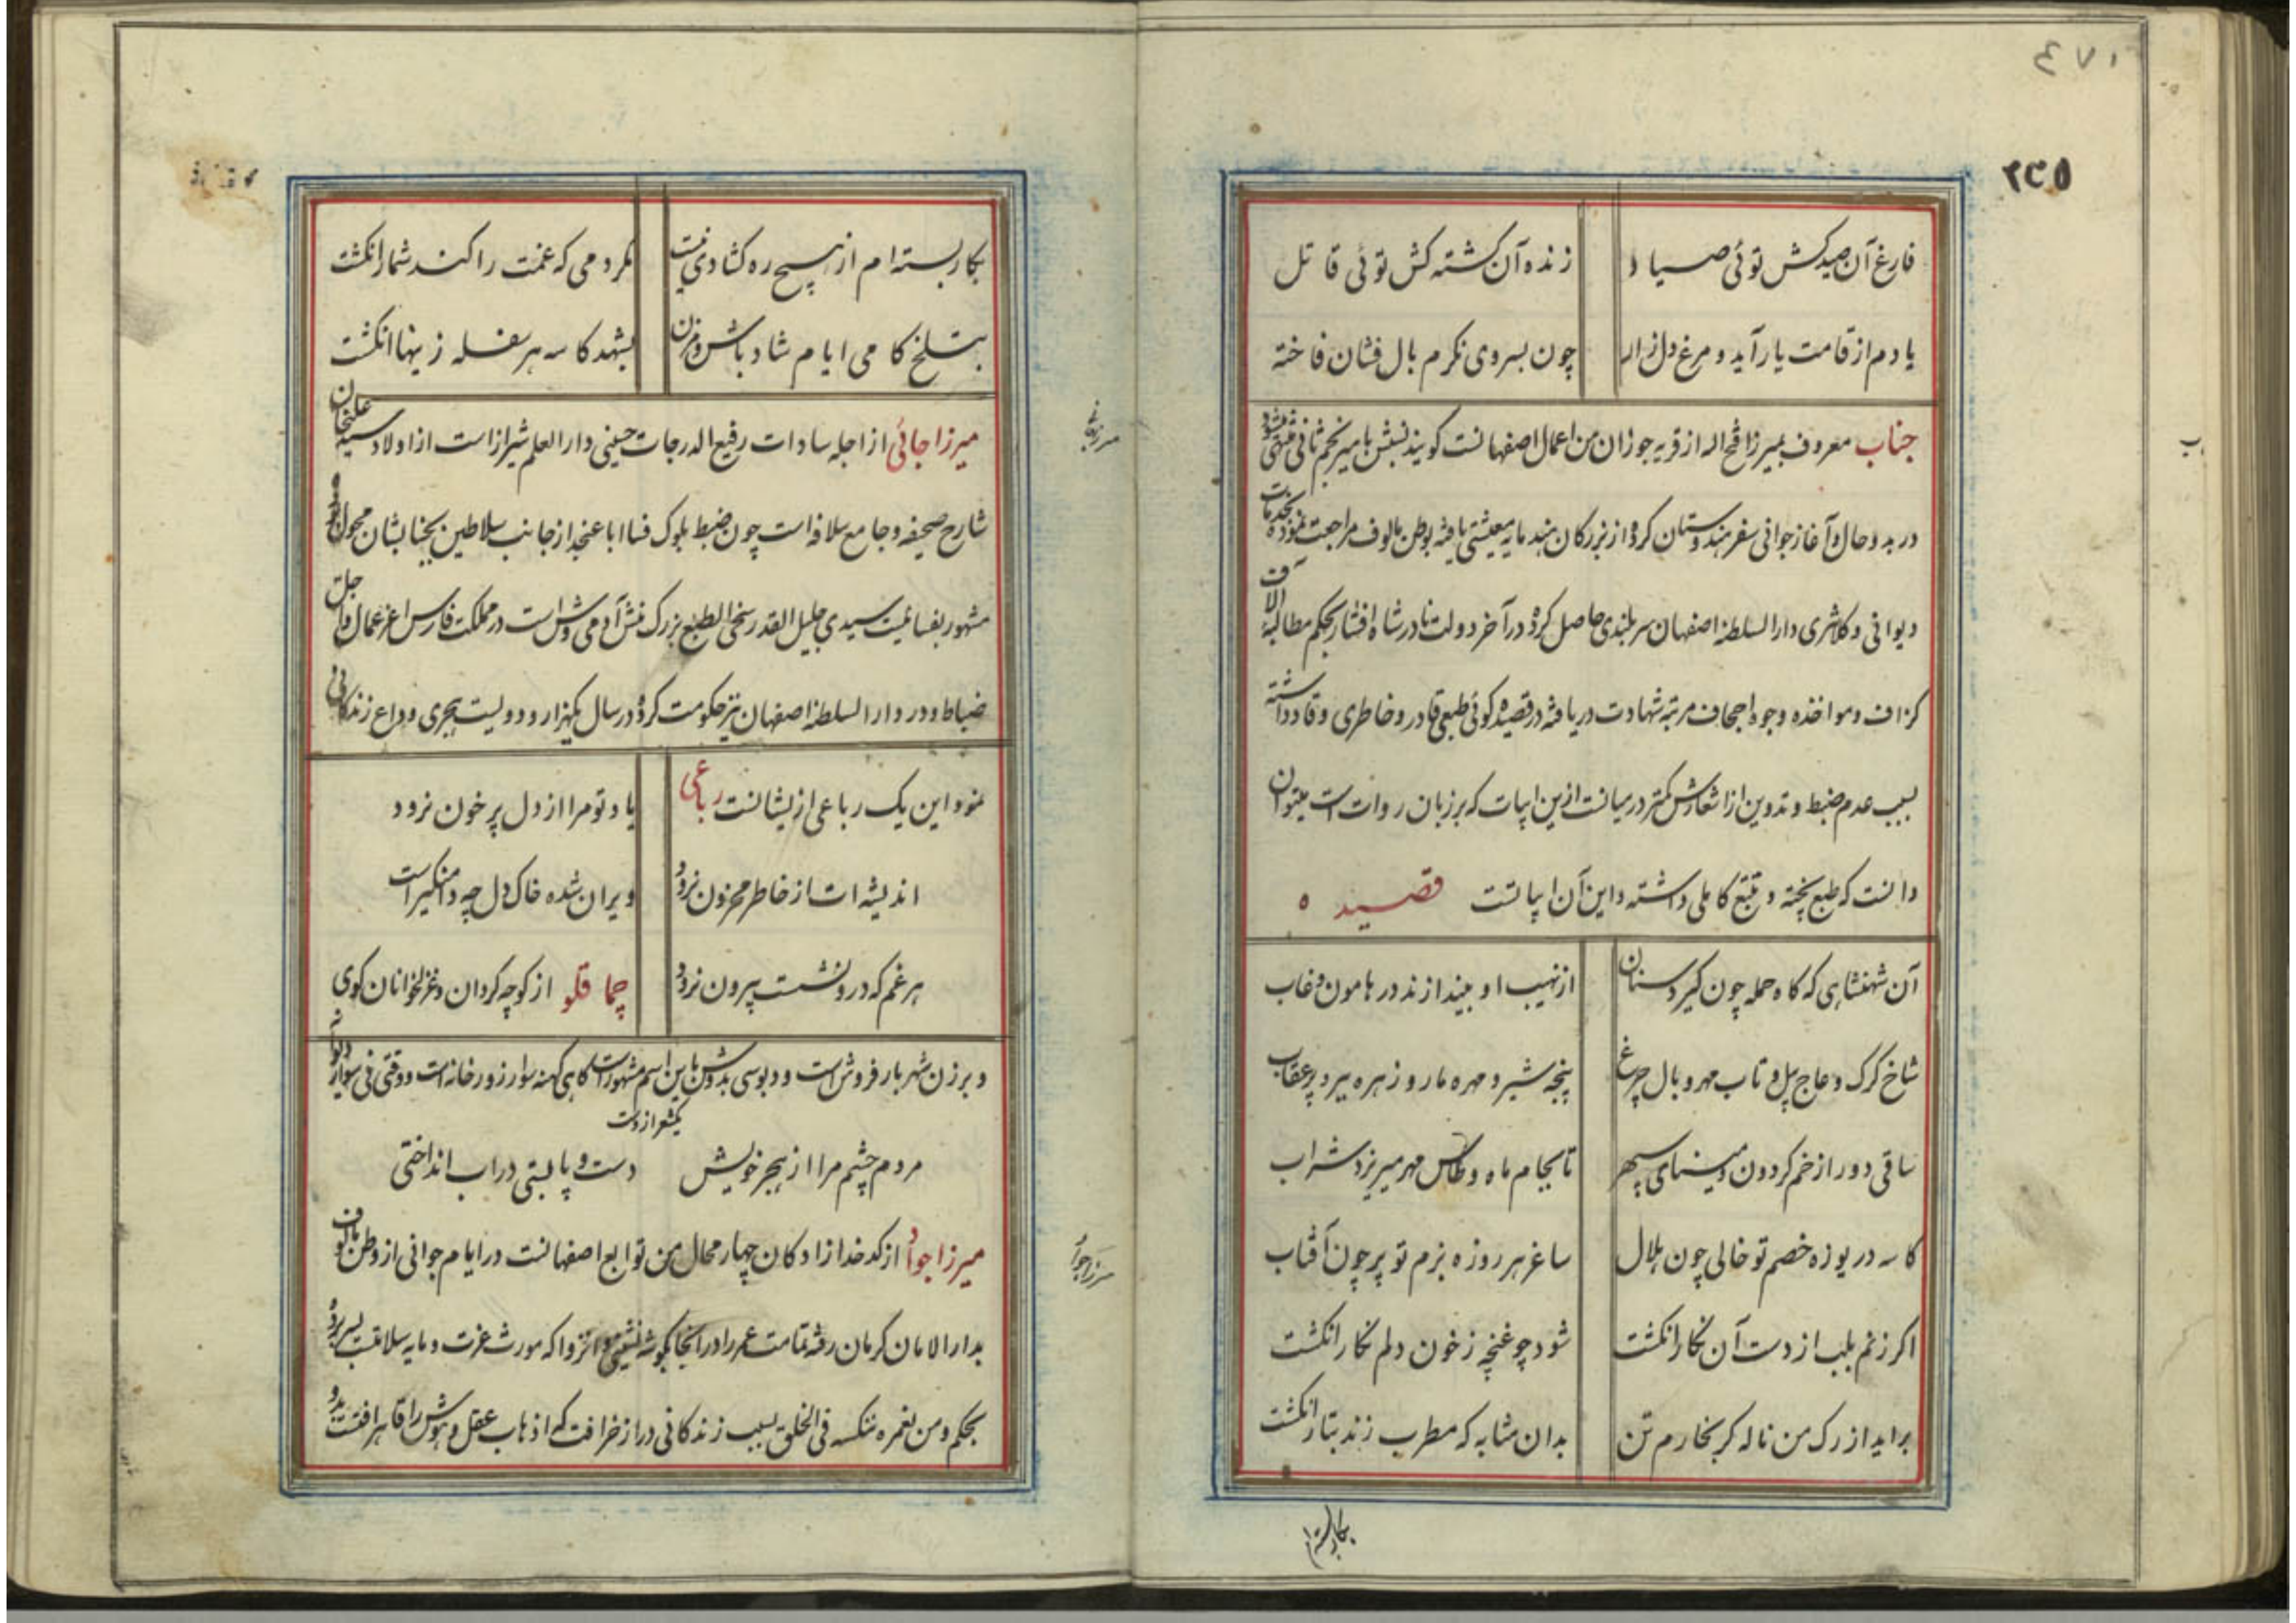 ٤٧١
٢٣٥
فارغ آن صید کش توئی صیاد
زنده آن کشته کش توئی قاتل
یادم از قامت یار آید و مرغ دل زار
چون بسروی نکرم بال فشان فاخته
جناب معروف بمیرزا فتح اله از قریه جوزان من اعمال اصفهانست کویند نسبش بامیر نجم ثانی منتهی میشود
در بدو حال و آغاز جوانی سفر هندوستان کرده از بزرکان هند مایه معیشتی یافته بوطن مالوف مراجعت نموده بخدمات
دیوانی و کلانتری دار السلطنه اصفهان سربلندی حاصل کرده در آخر دولت نادر شاه افشار بحکم مطالبه آلاف
کزاف و مواخذه وجوه اجحاف مرتبه شهادت دریافته در قصیده کوئی طبعی قادر و خاطری وقاد داشته
بسبب عدم ضبط و تدوین از اشعارش کمتر در میانست ازین ابیات که بر زبان روات است میتوان
دانست که طبع پخته و تتبع کاملی داشته و این آن ابیاتست قصیده
آن شهنشاهی که کاه حمله چون کیرد سنان
از نهیب او بیندازند در هامون و غاب
شاخ کرک و عاج پیل و تاب مهر و بال چرغ
پنجه شیر و مهره مار و زهره ببر و پر عقاب
ساقی دور از خم کردون و مینای سپهر
تا بجام ماه و طاس مهر میریزد شراب
کاسه دریوزه خصم تو خالی چون هلال
ساغر هر روزه بزم تو پر چون آفتاب
اکر زنم بلب از دست آن نکار انکشت
شود چو غنچه ز خون دلم نکار انکشت
براید از رک من ناله کر بخارم تن
بدان مثابه که مطرب زند بتار انکشت
بکار بسته ام
بکار بسته ام از هیچ ره کشادی نیست
نکرد می که غمت را کند شمار انکشت
بتلخ کامی ایام شاد باش و مزن
بشهد کاسه هر سفله زینها انکشت
میرزا جانی از اجله سادات رفیع الدرجات حسینی دار العلم شیراز است از اولاد سید علیخان
شارح صحیفه و جامع سلافه است چون ضبط بلوک فسا اباعنجد از جانب سلاطین بجناب شان محول بوده
مشهور بفسائیست سیدی جلیل القدر سخی الطبع بزرک منش آدمی وش است در مملکت فارس اعز عمال و اجل
ضباط و در دار السلطنه اصفهان نیز حکومت کرده در سال یکهزار و دویست هجری وداع زندکانی
نمود این یک رباعی از یشانست رباعی
یاد تو مرا از دل پر خون نرود
اندیشه ات از خاطر محزون نرود
ویران شده خاک دل چه دامنکیر است
هر غم که درو نشست بیرون نرود
چماقلو از کوچه کردان و غزلخوانان کوی
و برزن شهر بارفروش است و دبوسی بدوش باین اسم مشهور است کاهی کهنه سوار زورخانه است و وقتی فی سواره دیوانه
یکشعر ازوست
مردم چشم مرا از هجر خویش
دست و پا بستی در اب انداختی
میرزا جواد از کدخدا زادکان چهار محال من توابع اصفهانست در ایام جوانی از وطن مالوف
بدار الامان کرمان رفته تمامت عمر را در انجا بکوشه نشینی و انزوا که مورث عزت و مایه سلامت بسر برده
بحکم و من نعمره ننکسه فی الخلق بسبب زندکانی دراز خرافت که اذهاب عقل و هوش را قاهر افتست بدو
میرزا جانی
میرزا جواد